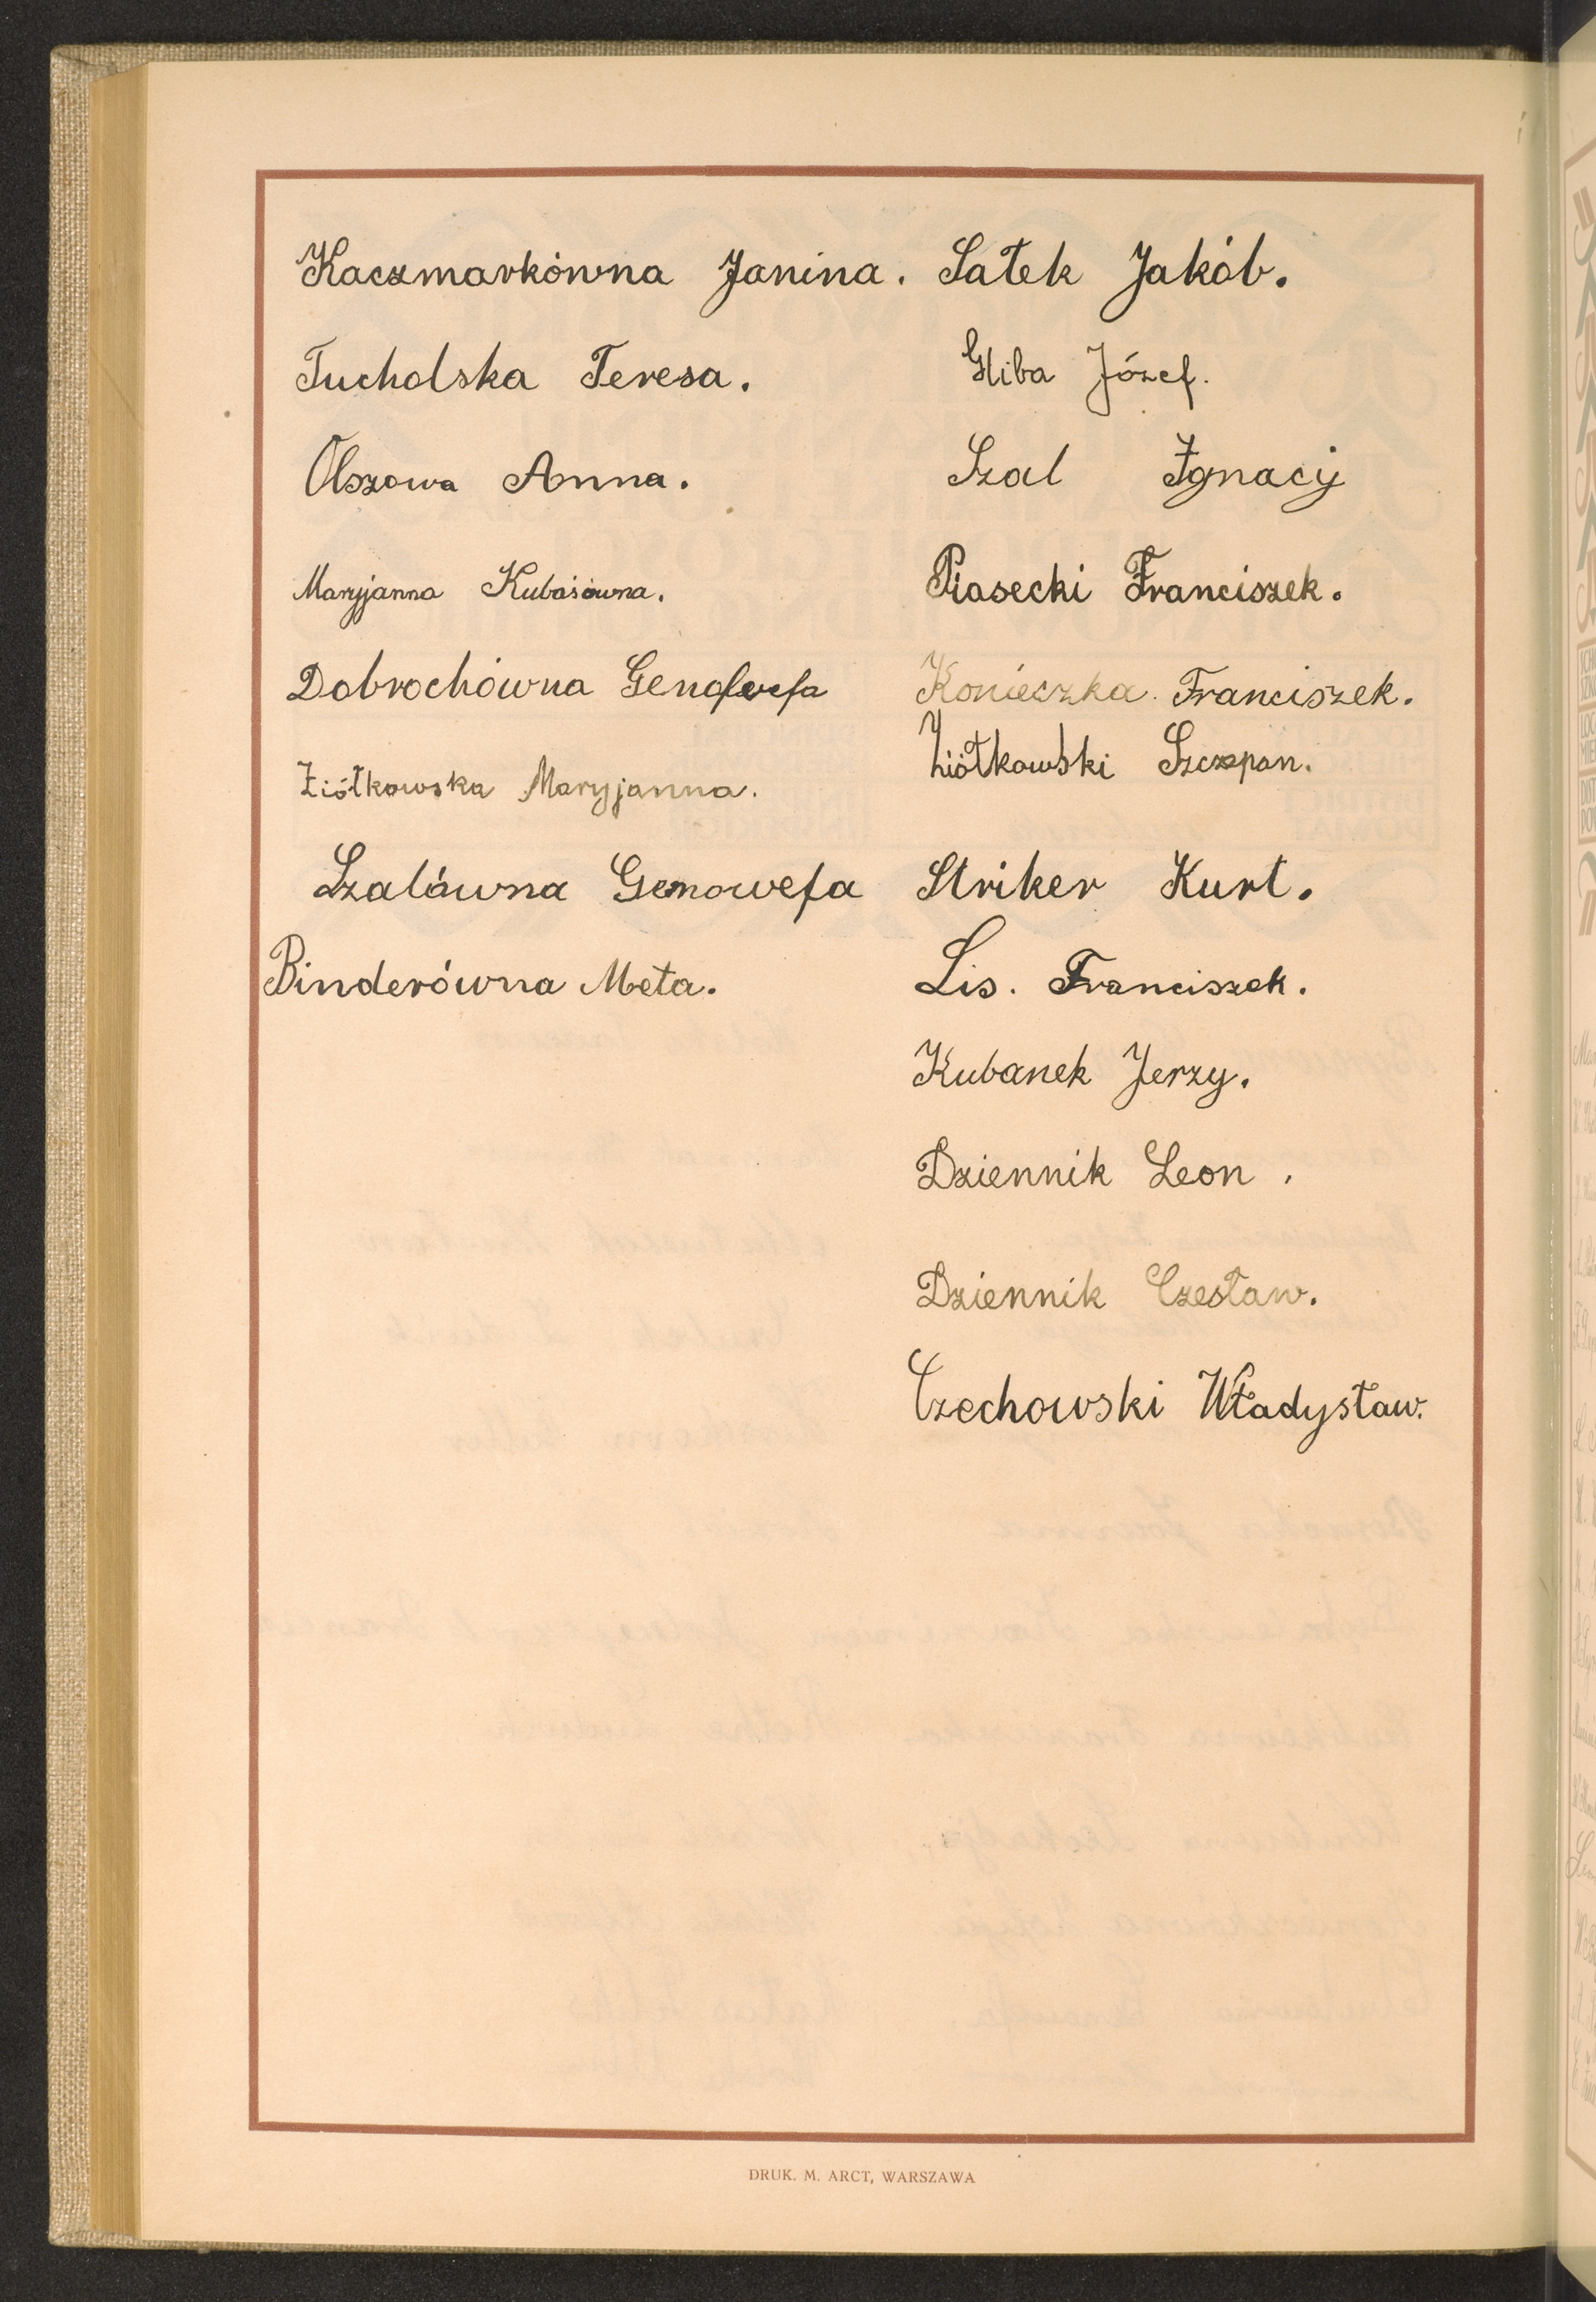 Kaczmarkówna Janina.
Tucholska Teresa.
Olszowa Anna.
Maryjanna Kubasówna.
Dobrochówna Genofewfa
Ziółkowska Maryjanna.
Szalówna Genowefa
Binderówna Meta.
Sałek Jakób.
Gliba Józef.
Szal Ignacy
Piasecki Franciszek.
Konieczka Franciszek.
Ziółkowski Szczepan.
Striker Kurt.
Lis. Franciszek.
Kubanek Jerzy.
Dziennik Leon.
Dziennik Czesław.
Czechowski Władysław.
DRUK. M. ARCT, WARSZAWA